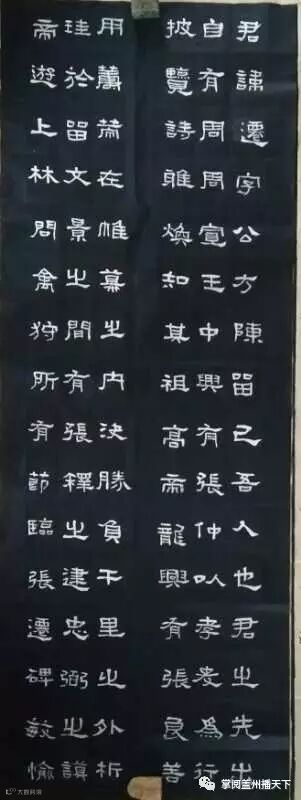 君諱遷字公方陳留己吾人也君之先出
自有周周宣王中興有張仲以孝友為行
披覽詩雅煥知其祖高帝龍興有張良善
用籌策在帷幕之內決勝負千里之外析
珪於留文景之間有張釋之建忠弼之謨
帝遊上林問禽狩所有節臨張遷碑敏愉
掌阅盖州播天下